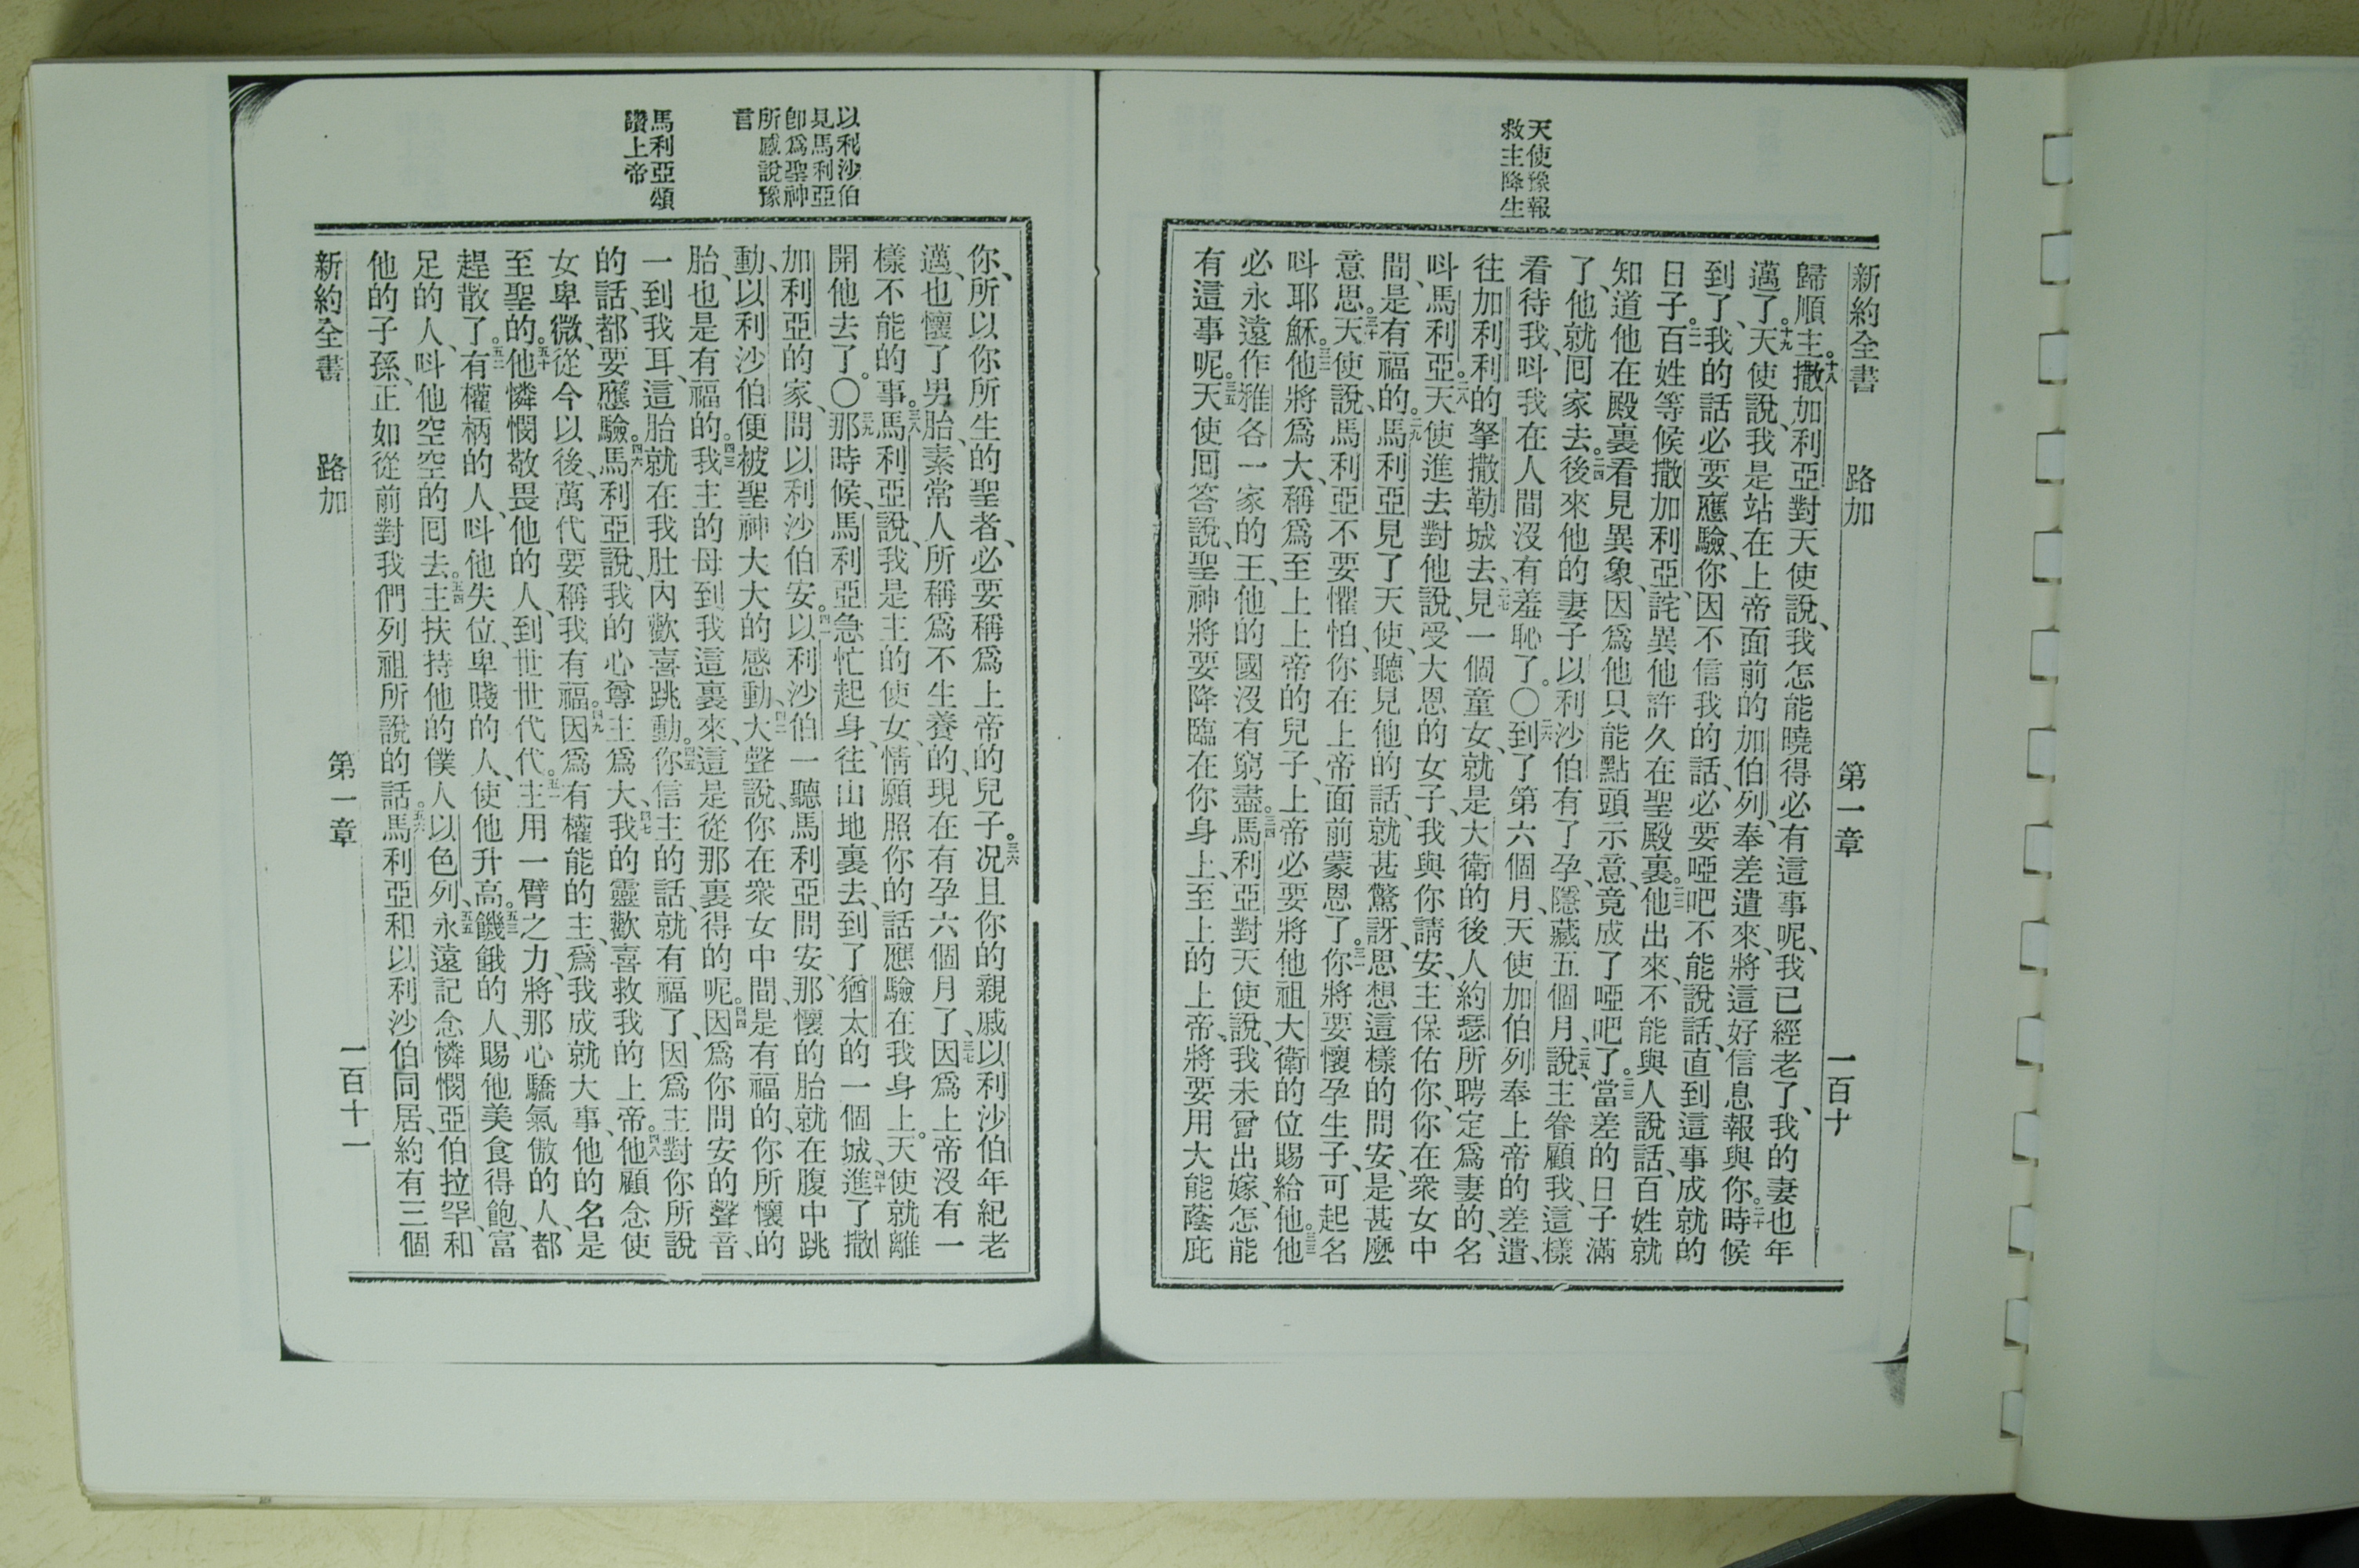 天使豫報
救主降生
新約全書 路加 第一章 一百十
歸順主。十八撒加利亞對天使說、我怎能曉得必有這事呢、我已經老了、我的妻也年
邁了。十九天使說、我是站在上帝面前的加伯列、奉差遣來、將這好信息報與你。二十時候
到了、我的話必要應驗、你因不信我的話、必要啞吧不能說話、直到這事成就的
日子。二一百姓等候撒加利亞、詫異他許久在聖殿裏。二二他出來、不能與人說話、百姓就
知道他在殿裏看見異象、因爲他只能點頭示意、竟成了啞吧了。二三當差的日子滿
了、他就囘家去。二四後來他的妻子以利沙伯有了孕、隱藏五個月、二五說、主眷顧我、這樣
看待我、呌我在人間沒有羞恥了。〇二六到了第六個月、天使加伯列奉上帝的差遣、
往加利利的拏撒勒城去、二七見一個童女、就是大衛的後人約瑟所聘定爲妻的、名
呌馬利亞。二八天使進去對他說、受大恩的女子、我與你請安、主保佑你、你在衆女中
間、是有福的。二九馬利亞見了天使、聽見他的話、就甚驚訝、思想這樣的問安、是甚麼
意思。三十天使說、馬利亞不要懼怕、你在上帝面前蒙恩了。三一你將要懷孕生子、可起名
呌耶穌。三二他將爲大、稱爲至上上帝的兒子、上帝必要將他祖大衛的位賜給他。三三他
必永遠作雅各一家的王、他的國沒有窮盡。三四馬利亞對天使說、我未曾出嫁、怎能
有這事呢。三五天使囘答說、聖神將要降臨在你身上、至上的上帝、將要用大能蔭庇
以利沙伯
見馬利亞
卽爲聖神
所感說豫
言
馬利亞頌
讚上帝
你、所以你所生的聖者、必要稱爲上帝的兒子。三六况且你的親戚以利沙伯年紀老
邁、也懷了男胎、素常人所稱爲不生養的、現在有孕六個月了、三七因爲上帝沒有一
樣不能的事。三八馬利亞說、我是主的使女、情願照你的話應驗在我身上。天使就離
開他去了。〇三九那時候、馬利亞急忙起身、往山地裏去、到了猶太的一個城、四十進了撒
加利亞的家、問以利沙伯安。四一以利沙伯一聽馬利亞問安、那懷的胎就在腹中跳
動、以利沙伯便被聖神大大的感動、四二大聲說、你在衆女中間、是有福的、你所懷的
胎、也是有福的。四三我主的母到我這裏來、這是從那裏得的呢。四四因爲你問安的聲音、
一到我耳、這胎就在我肚內歡喜跳動。四五你信主的話、就有福了、因爲主對你所說
的話、都要應驗。四六馬利亞說、我的心尊主爲大、四七我的靈歡喜救我的上帝。四八他顧念使
女卑微、從今以後、萬代要稱我有福。四九因爲有權能的主、爲我成就大事、他的名是
至聖的。五十他憐憫敬畏他的人、到世世代代。五一主用一臂之力、將那心驕氣傲的人、都
趕散了。五二有權柄的人、呌他失位、卑賤的人、使他升高。五三饑餓的人、賜他美食得飽、富
足的人、呌他空空的囘去。五四主扶持他的僕人以色列、五五永遠記念憐憫亞伯拉罕、和
他的子孫、正如從前對我們列祖所說的話。五六馬利亞和以利沙伯同居、約有三個
新約全書 路加 第一章 一百十一